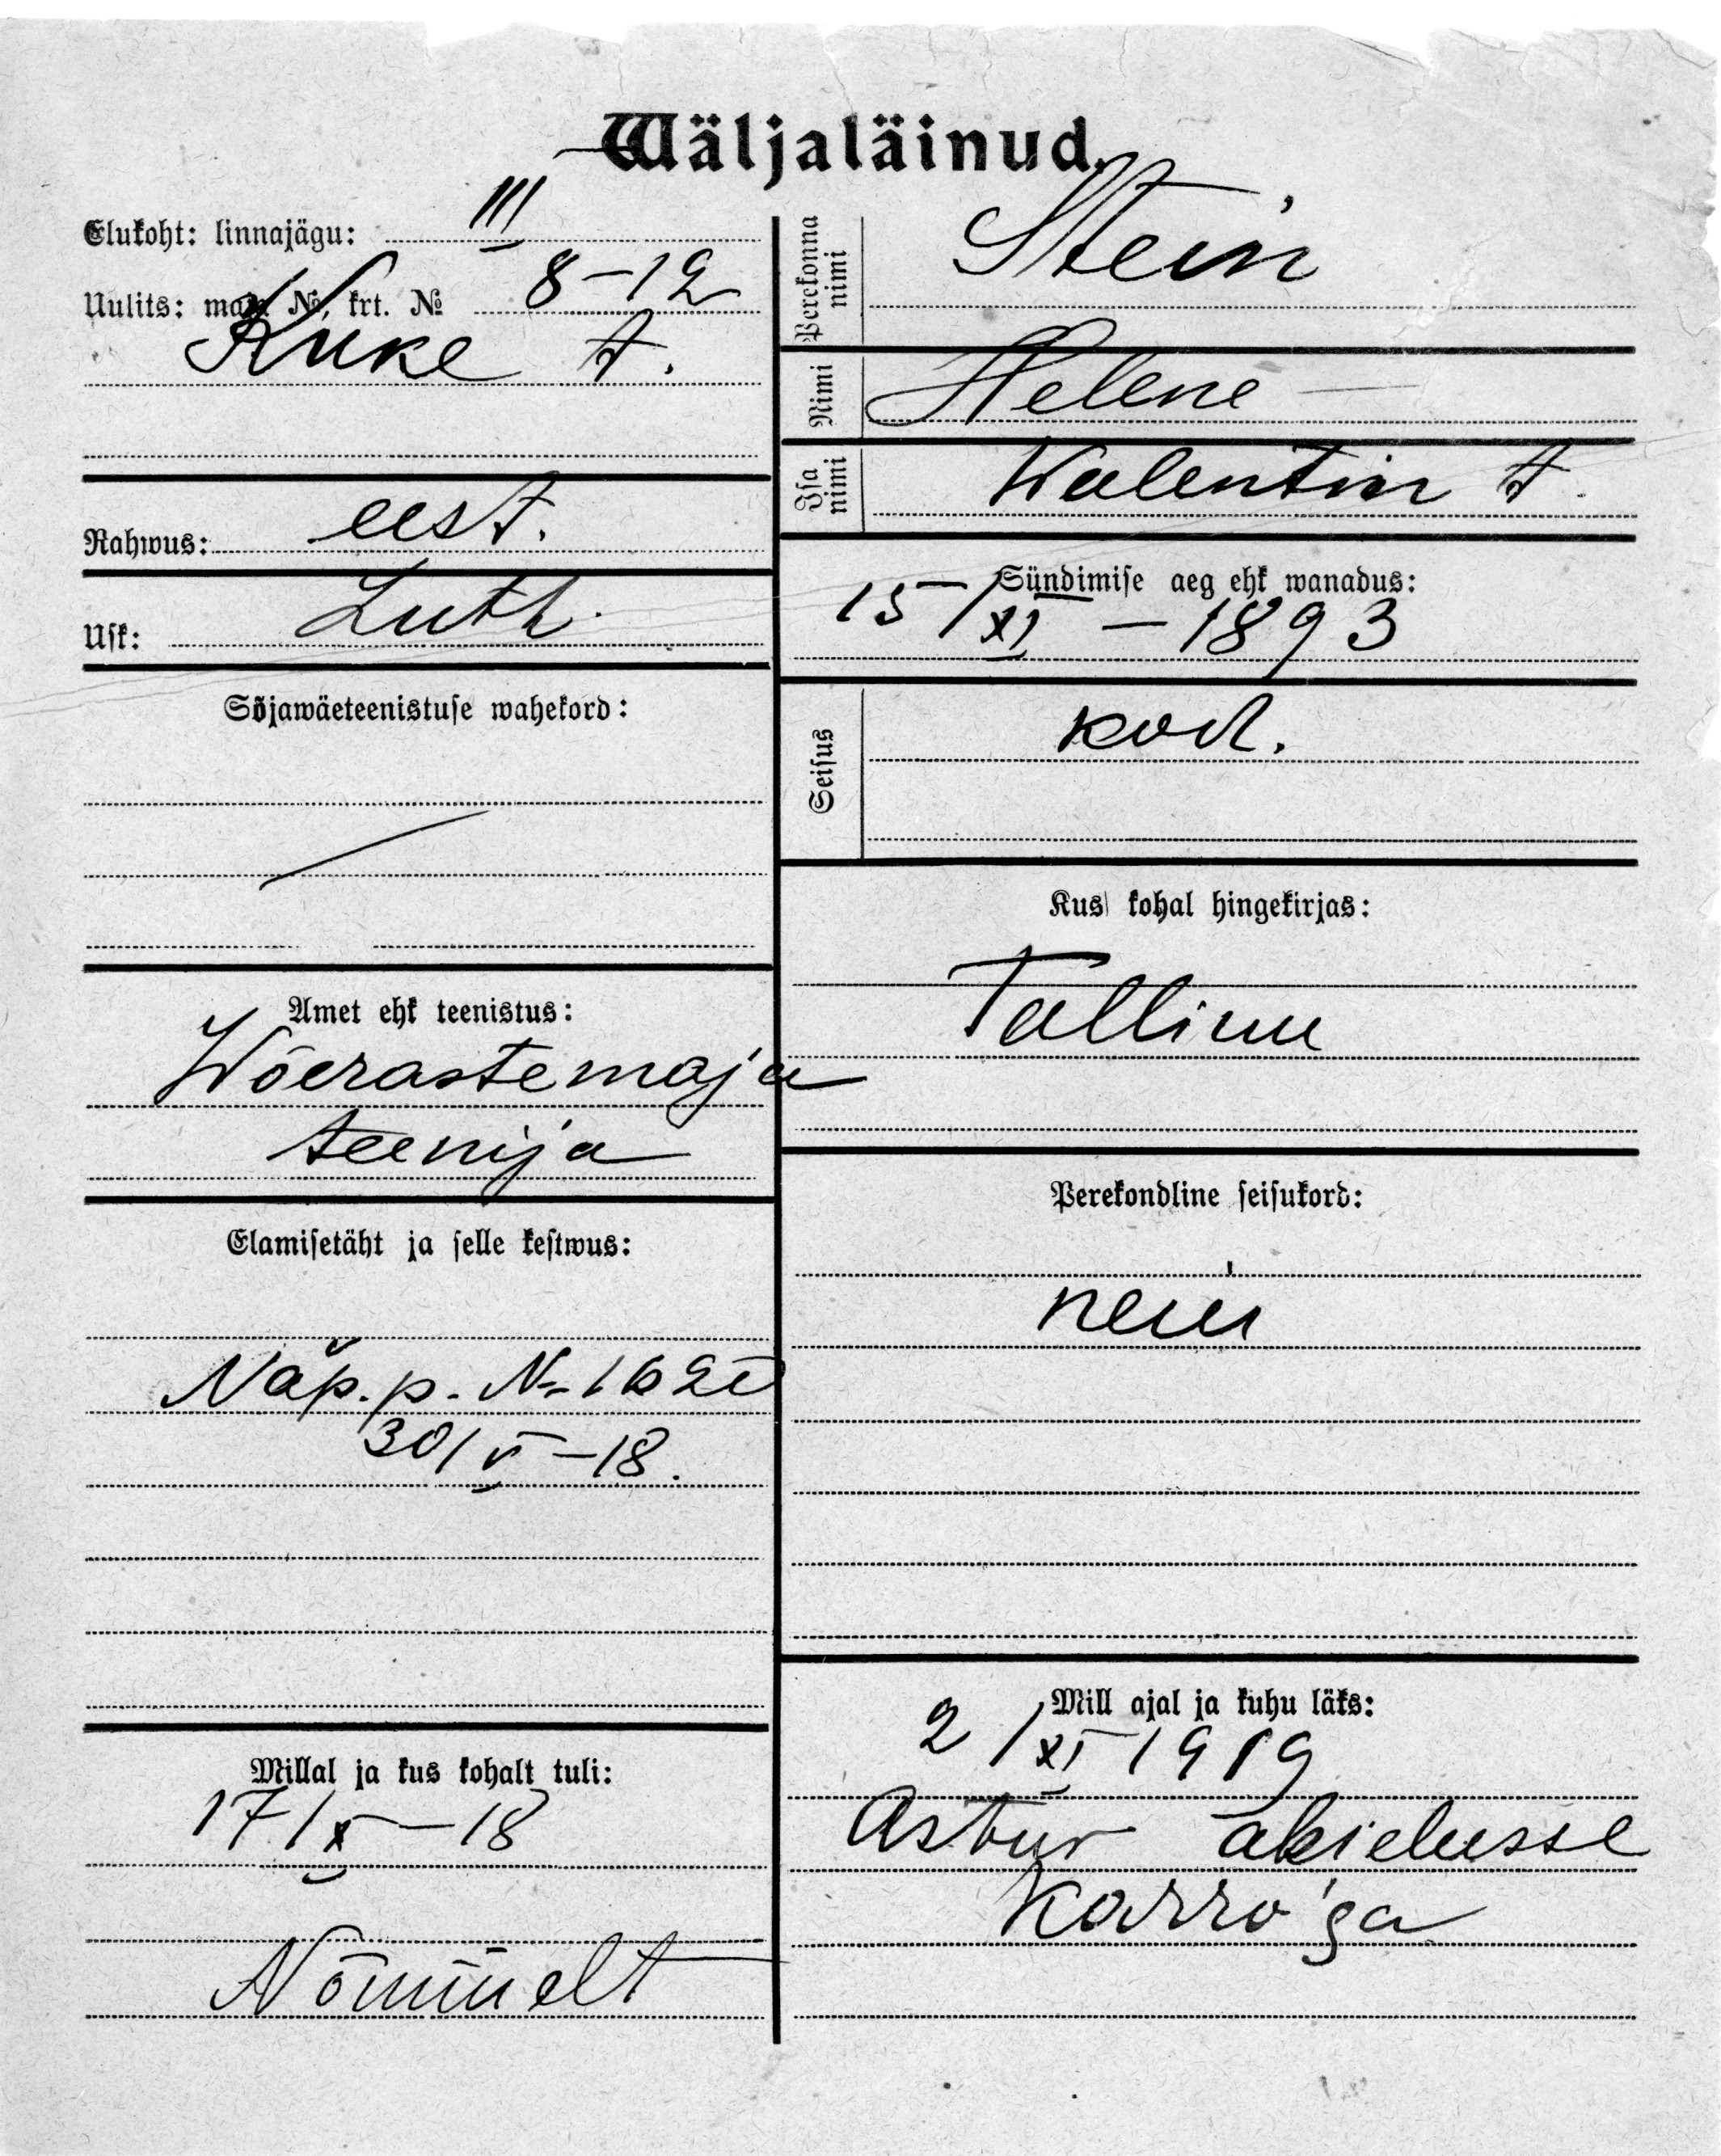 Wäljaläinud.
Elukoht: linnajägu: III
Uulits: maja №, krt. № 8-12
Kuke t.
Rahwus: eest.
Usk: Luth.
Sõjawäeteenistuse wahekord:
Amet ehk teenistus:
Wõerastemaja
teenija
Elamisetäht ja selle kestwus:
Näp. p. N=
30/V-18.
Millal ja kus kohalt tuli:
17/X-18
Nõmmelt
Perekonna nimi Stein
Nimi Helene
Isa nimi Walentin t.
Sündimise aeg ehk wanadus:
15/XI-1893
Seisus kod.
Kus kohal hingekirjas:
Tallinn
Perekondline seisukord:
neiu
Mill ajal ja kuhu läks:
2/XI 1919
Astus abielusse
Karro'ga